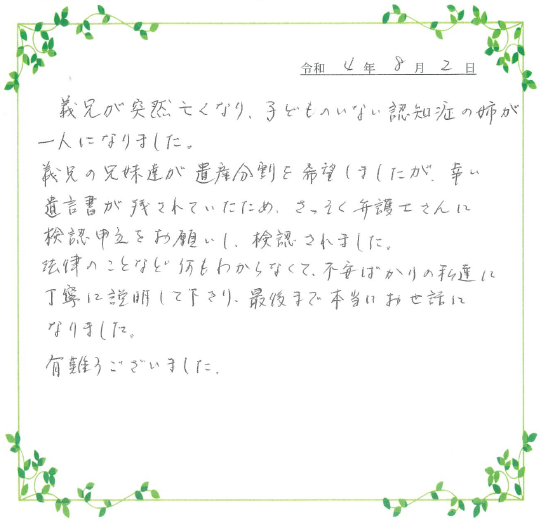 令和 4 年 8 月 2 日
義兄が突然亡くなり、子どものいない認知症の姉が
一人になりました。
義兄の兄妹達が遺産分割を希望しましたが、幸い
遺言書が残されていたため、さっそく弁護士さんに
検認申立をお願いし、検認されました。
法律のことなど何もわからなくて、不安ばかりの私達に
丁寧に説明して下さり、最後まで本当にお世話に
なりました。
有難うございました。